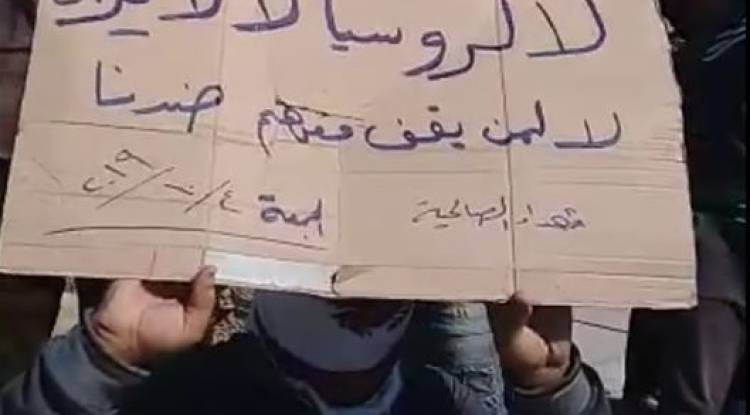 لا لروسيا لا لايران
لا لمن يقف معهم ضدنا
شهداء الصالحية الجمعة ٤/١٠/٢٠١٩